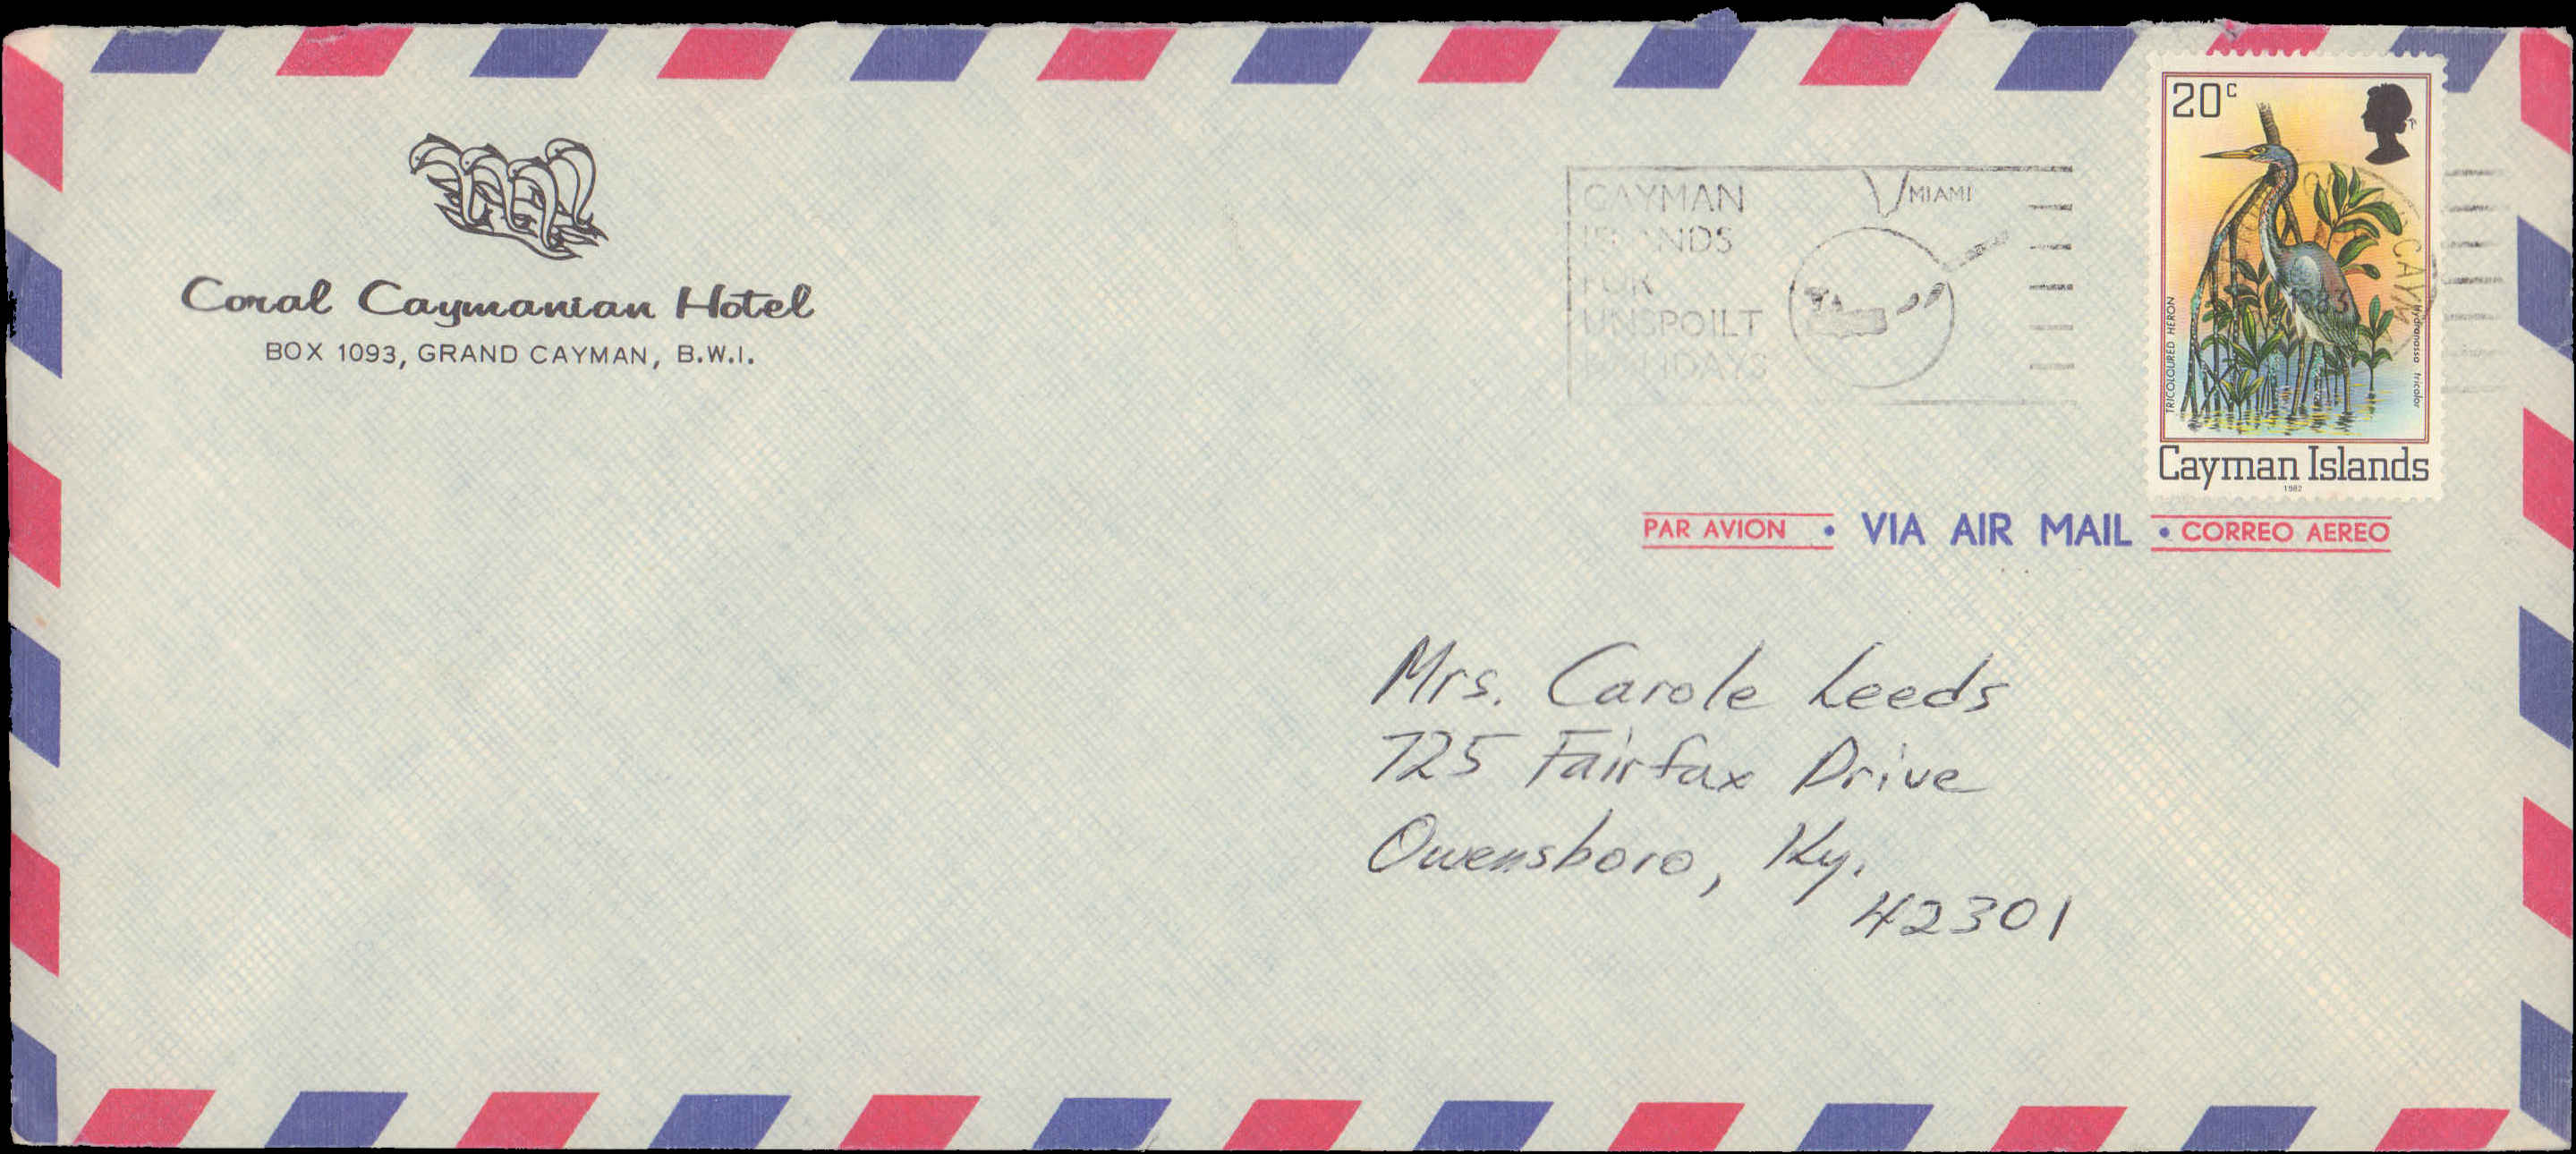 Coral Caymanian Hotel
BOX 1093, GRAND CAYMAN, B.W.I.
CAYMAN
ISLANDS
FOR
UNSPOILT
HOLIDAYS
MIAMI
20c
TRICOLOURED HERON
Hydranassa tricolor
CAYM
Cayman Islands
1982
PAR AVION • VIA AIR MAIL • CORREO AEREO
Mrs. Carole Leeds
725 Fairfax Drive
Owensboro, Ky.
42301